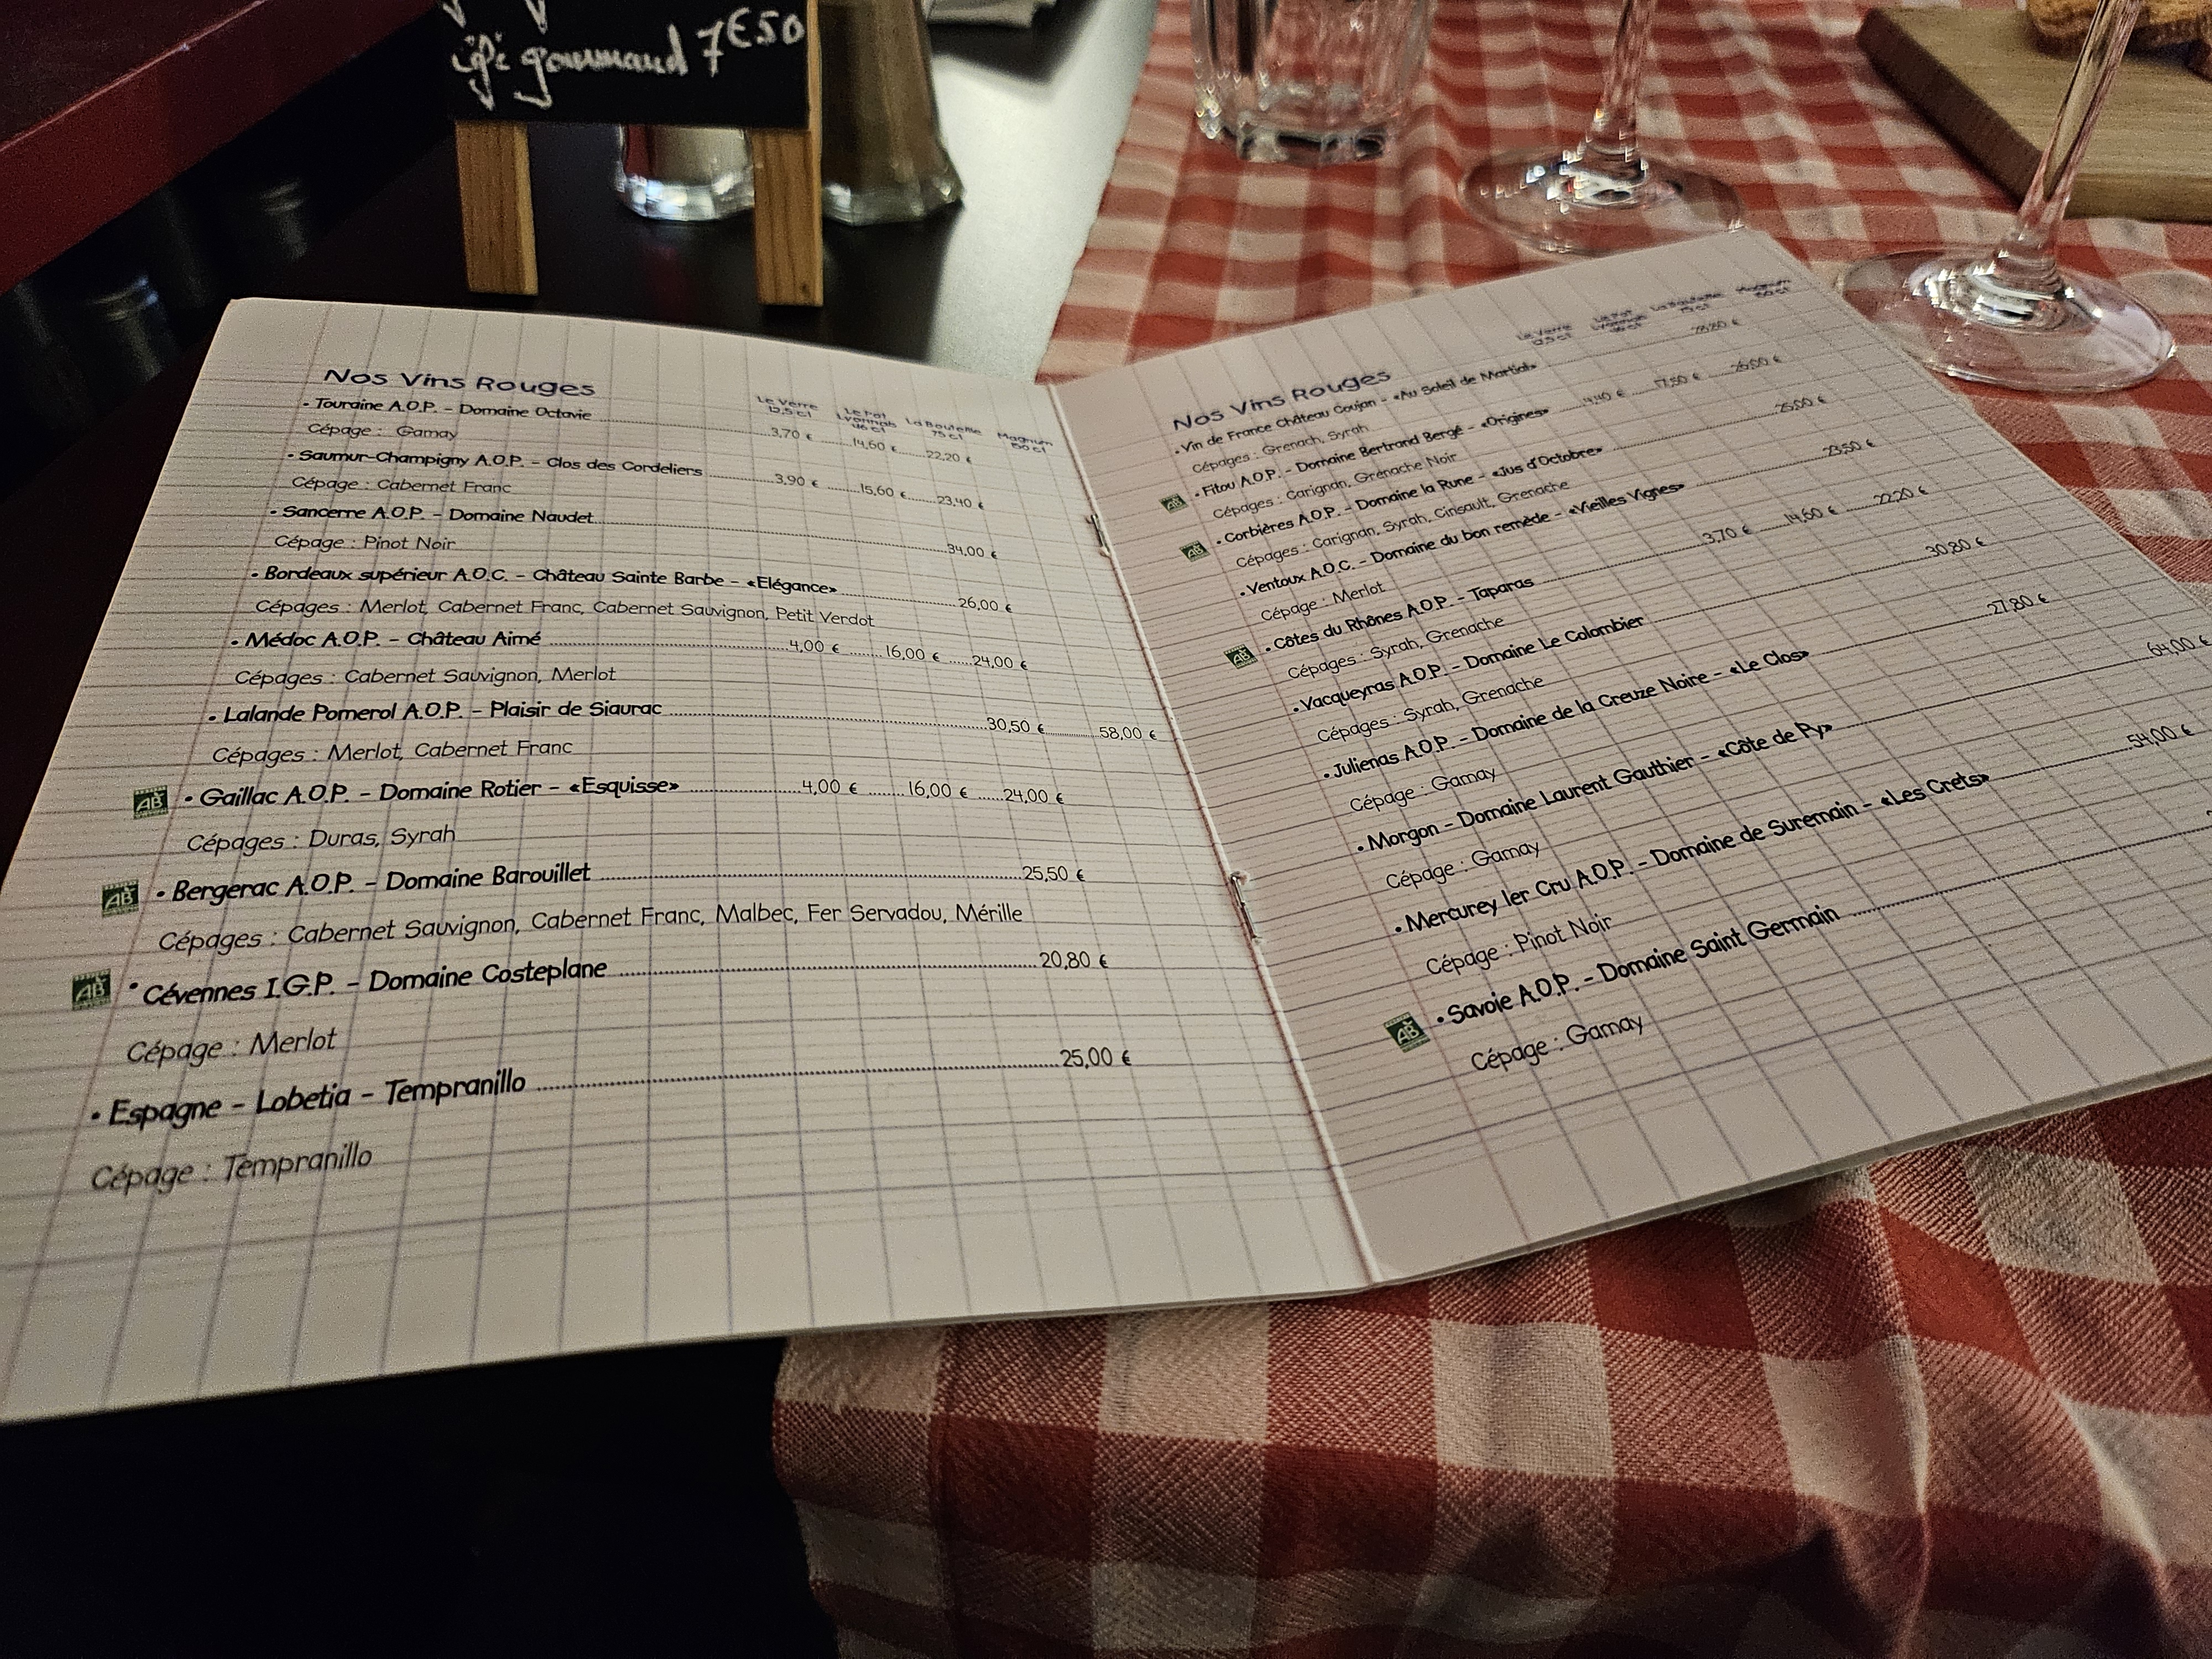 gourmand 7€50
Nos Vins Rouges
Le Verre 12,5 cl
Le Pot Lyonnais 46 cl
La Bouteille 75 cl
Magnum 150 cl
• Touraine A.O.P. - Domaine Octavie 3,70 € 14,60 € 22,20 €
Cépage : Gamay
• Saumur-Champigny A.O.P. - Clos des Cordeliers 3,90 € 15,60 € 23,40 €
Cépage : Cabernet Franc
• Sancerre A.O.P. - Domaine Naudet 34,00 €
Cépage : Pinot Noir
• Bordeaux supérieur A.O.C. - Château Sainte Barbe - «Elégance» 26,00 €
Cépages : Merlot, Cabernet Franc, Cabernet Sauvignon, Petit Verdot
• Médoc A.O.P. - Château Aimé 4,00 € 16,00 € 24,00 €
Cépages : Cabernet Sauvignon, Merlot
• Lalande Pomerol A.O.P. - Plaisir de Siaurac 30,50 € 58,00 €
Cépages : Merlot, Cabernet Franc
AB • Gaillac A.O.P. - Domaine Rotier - «Esquisse» 4,00 € 16,00 € 24,00 €
Cépages : Duras, Syrah
AB • Bergerac A.O.P. - Domaine Barouillet 25,50 €
Cépages : Cabernet Sauvignon, Cabernet Franc, Malbec, Fer Servadou, Mérille
AB • Cévennes I.G.P. - Domaine Costeplane 20,80 €
Cépage : Merlot
• Espagne - Lobetia - Tempranillo 25,00 €
Cépage : Tempranillo
Nos Vins Rouges
Le Verre 12,5 cl
Le Pot Lyonnais 46 cl
La Bouteille 75 cl
Magnum 150 cl
• Vin de France Château Coujan - «Au Soleil de Martial» 28,80 €
Cépages : Grenach, Syrah
AB • Fitou A.O.P. - Domaine Bertrand Bergé - «Origines» 4,40 € 17,50 € 26,00 €
Cépages : Carignan, Grenache Noir
AB • Corbières A.O.P. - Domaine la Rune - «Jus d'Octobre» 25,00 €
Cépages : Carignan, Syrah, Cinsault, Grenache
• Ventoux A.O.C. - Domaine du bon remède - «Vieilles Vignes» 23,50 €
Cépage : Merlot
AB • Côtes du Rhônes A.O.P. - Taparas 3,70 € 14,60 € 22,20 €
Cépages : Syrah, Grenache
• Vacqueyras A.O.P. - Domaine Le Colombier 30,80 €
Cépages : Syrah, Grenache
• Julienas A.O.P. - Domaine de la Creuze Noire - «Le Clos» 27,80 €
Cépage : Gamay
• Morgon - Domaine Laurent Gauthier - «Côte de Py» 64,00 €
Cépage : Gamay
• Mercurey 1er Cru A.O.P. - Domaine de Suremain - «Les Crets» 54,00 €
Cépage : Pinot Noir
AB • Savoie A.O.P. - Domaine Saint Germain
Cépage : Gamay